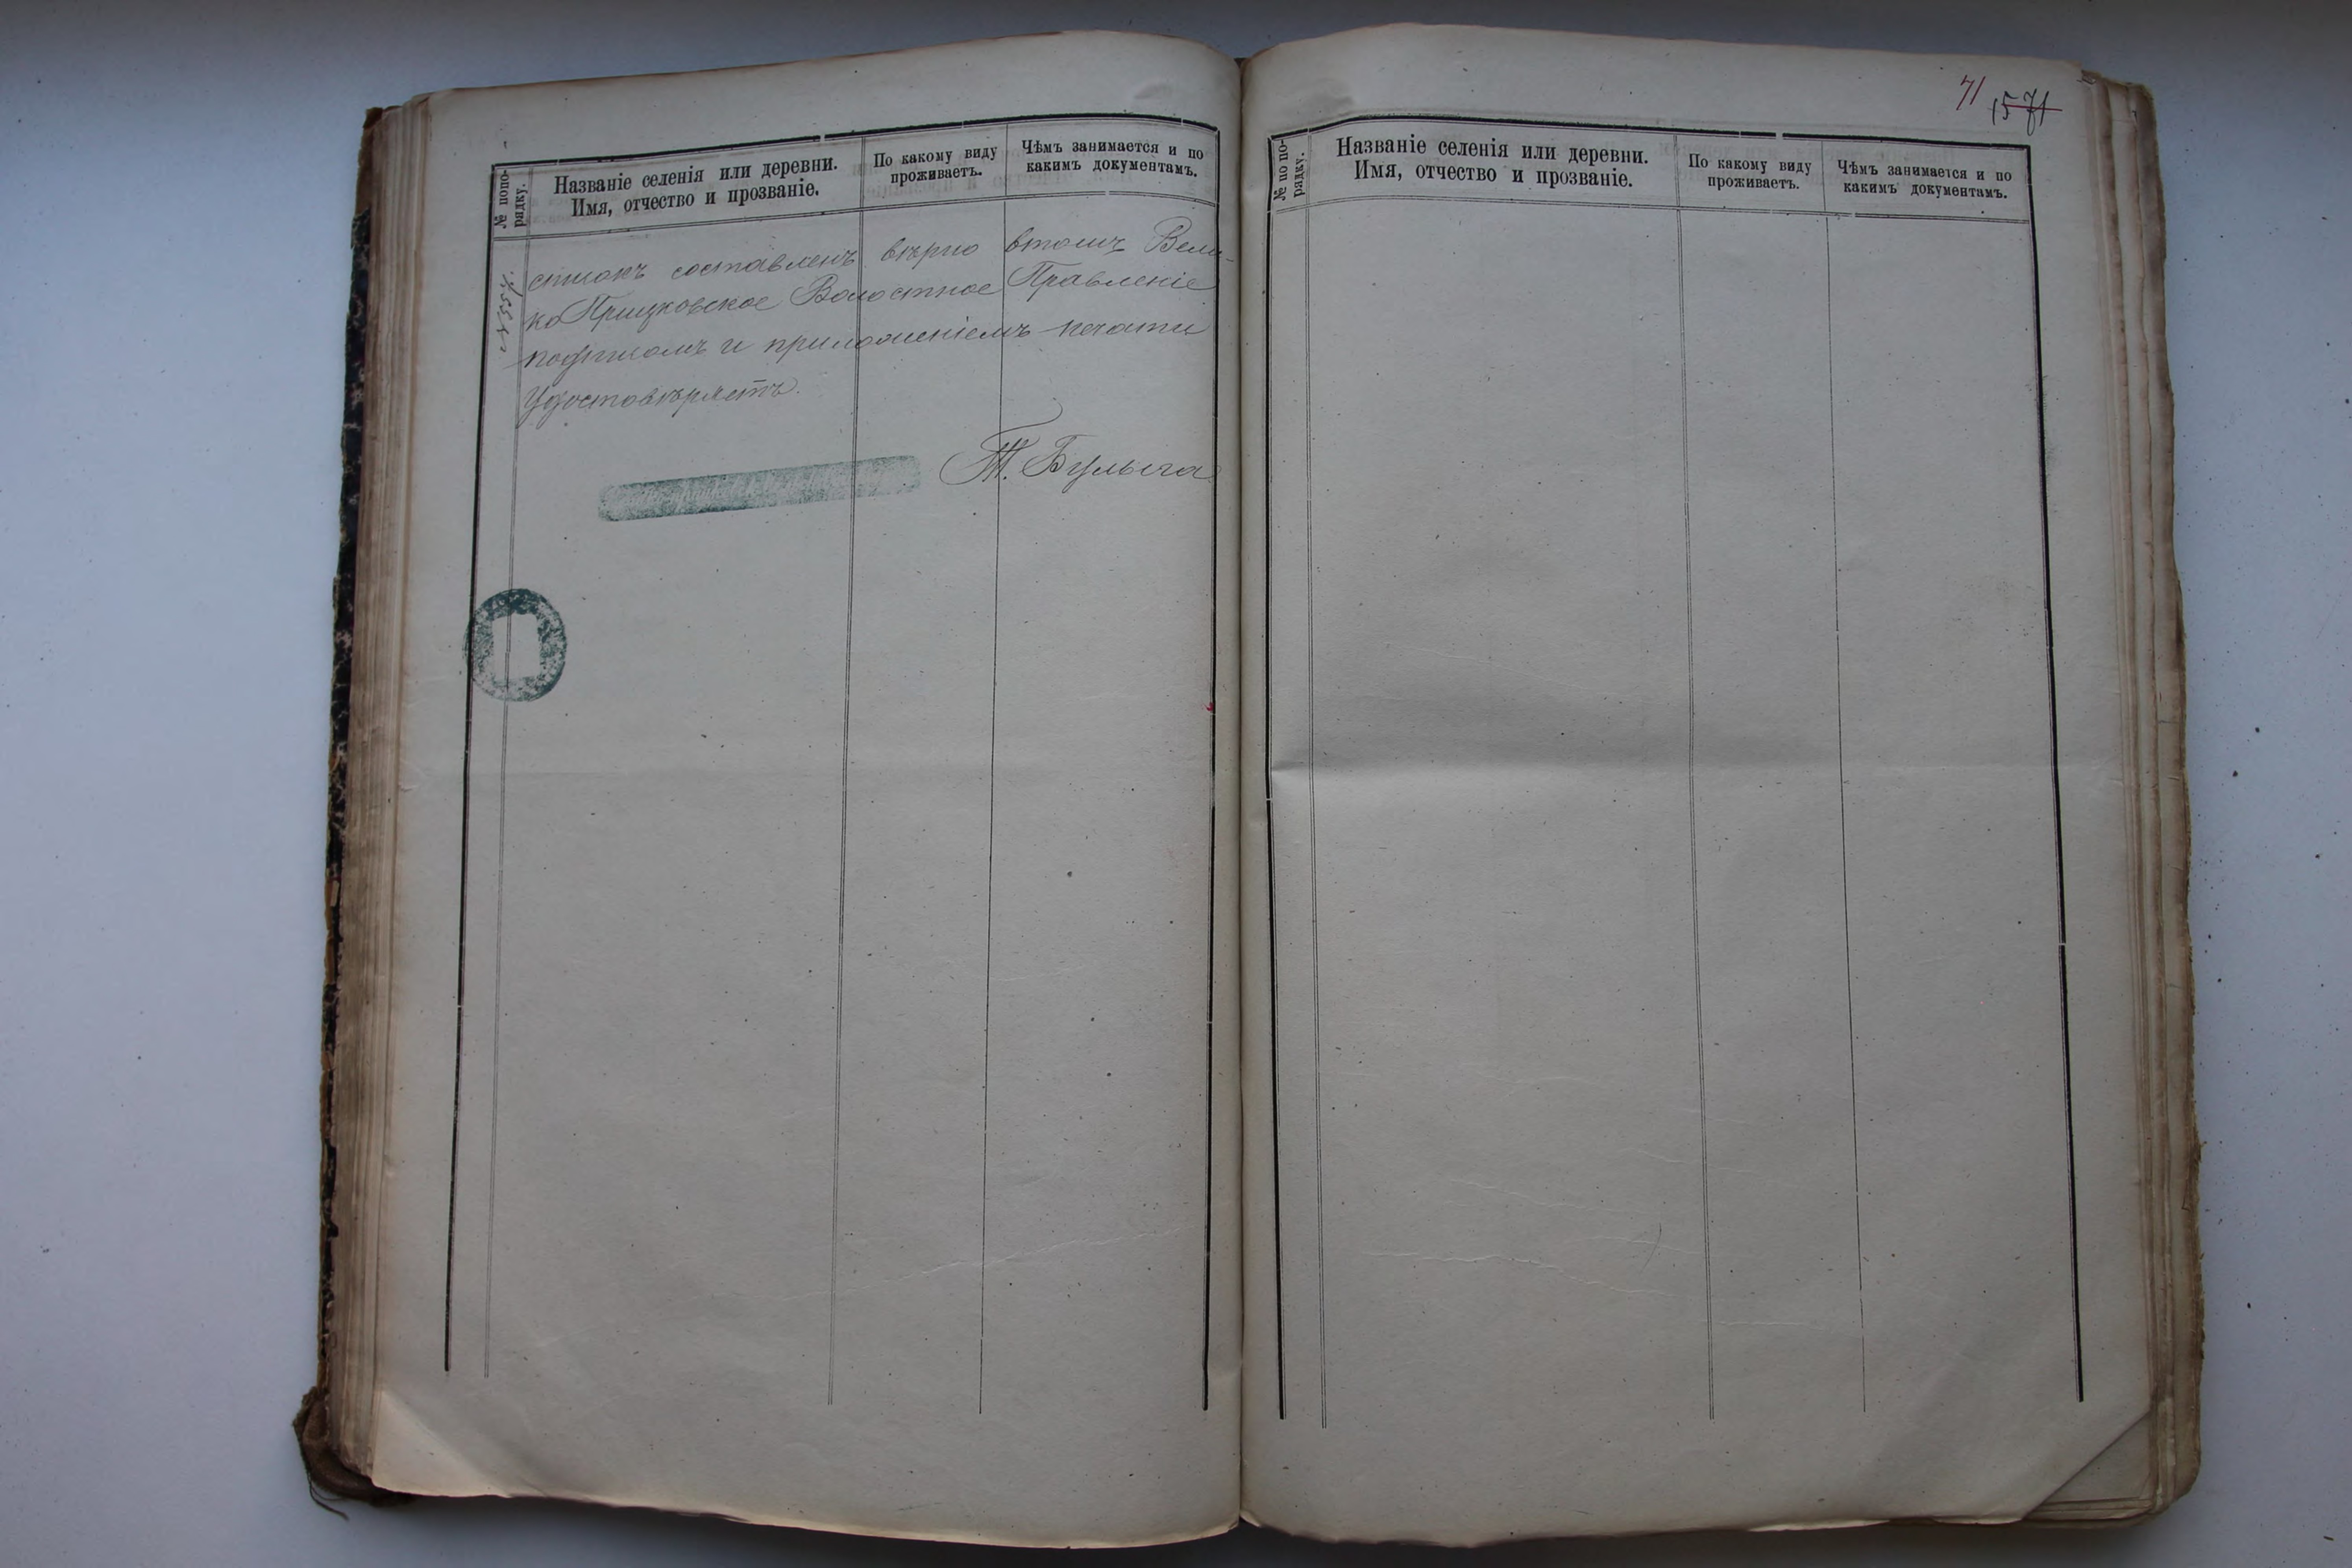 № попо-
рядку.
Названіе селенія или деревни.
Имя, отчество и прозваніе.
По какому виду
проживаетъ.
Чѣмъ занимается и по
какимъ документамъ.
списокъ составленъ вѣрно втомъ Вели-
ко Прицковское Волостное Правленіе
подписомъ и приложеніемъ печати
Удостовѣряетъ.
Т. Булыга
71
1571
№ по по-
рядку.
Названіе селенія или деревни.
Имя, отчество и прозваніе.
По какому виду
проживаетъ.
Чѣмъ занимается и по
какимъ документамъ.